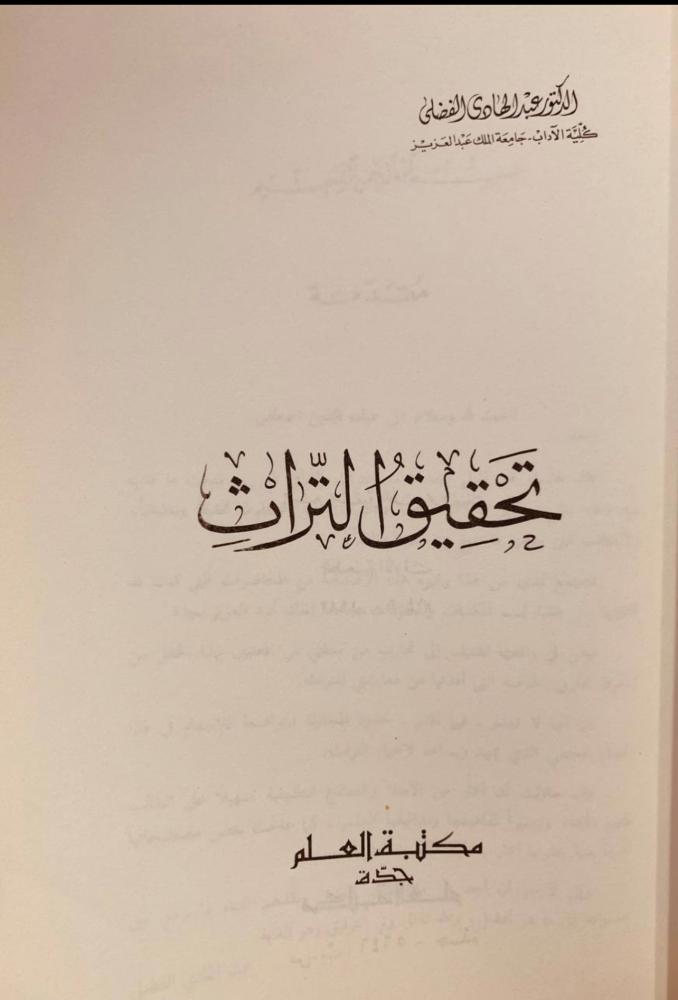 الدكتور عبد الهادي الفضلي
كلية الآداب - جامعة الملك عبد العزيز
تَحْقِيقُ التُّرَاثِ
مكتبة العلم
جدة